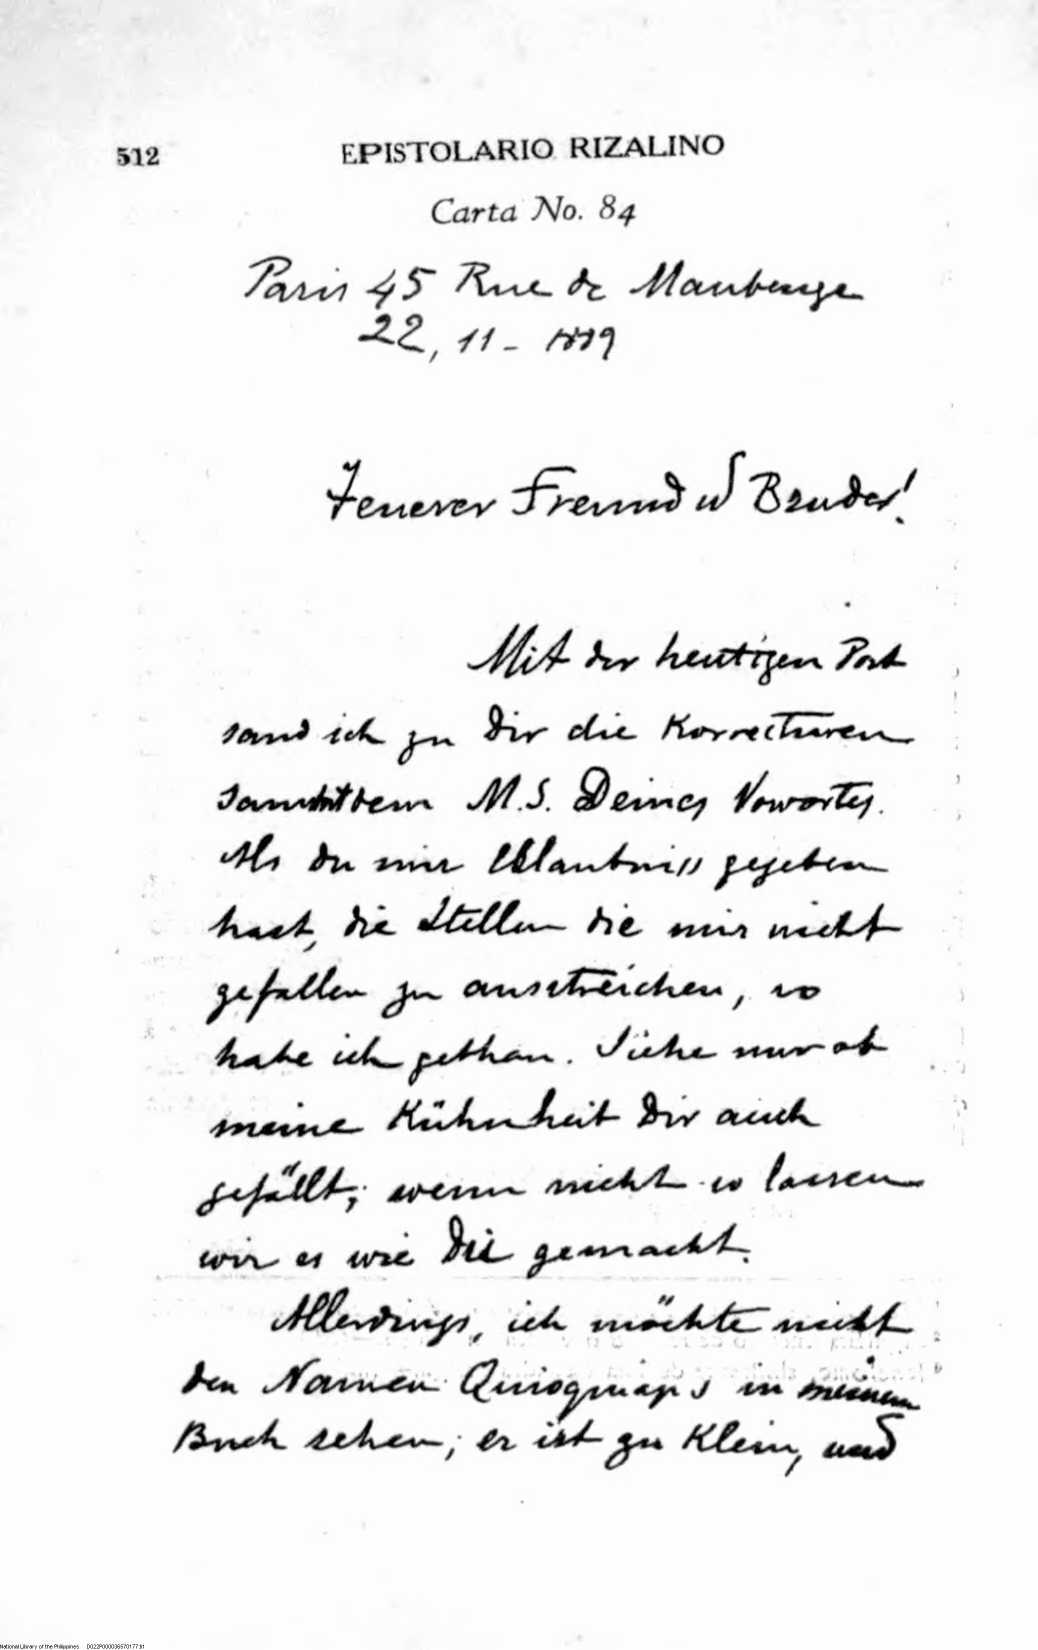 512 EPISTOLARIO RIZALINO
Carta No. 84
Paris 45 Rue de Maubeuge
22, 11 - 1889
Teuerer Freund u Bruder!
Mit der heutigen Post
sand ich zu Dir die Korrecturen
samt dem M.S. Deines Vorwortes.
Als Du mir Erlaubniss gegeben
hast, die Stellen die mir nicht
gefallen zu ausstreichen, so
habe ich gethan. Siehe nur ob
meine Kühnheit Dir auch
gefällt; wenn nicht so lassen
wir es wie Du gemacht.
Allerdings, ich möchte nicht
den Namen Quioquiaps in meinem
Buch sehen; er ist zu Klein, und
National Library of the Philippines